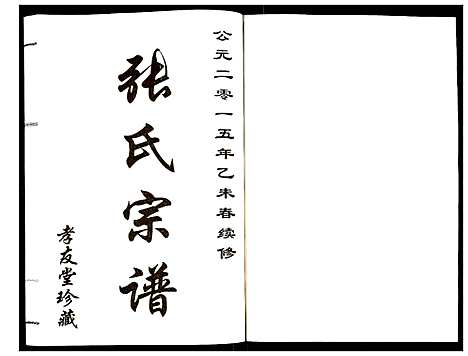 公元二零一五年乙未春续修
张氏宗谱
孝友堂珍藏